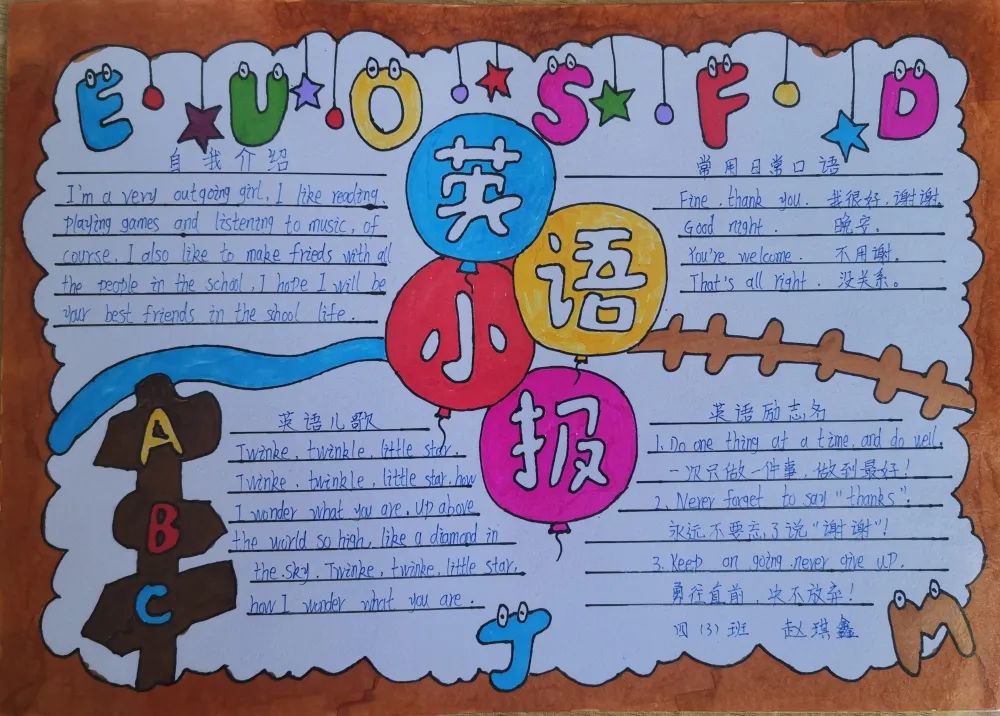 E U O S F D
英
语
小
报
自我介绍
I'm a very outgoing girl, I like reading,
playing games and listening to music, of
course, I also like to make frieds with all
the people in the school, I hope I will be
your best friends in the shool life.
常用日常口语
Fine, thank you. 我很好,谢谢.
Good night. 晚安.
You're welcome. 不用谢.
That's all right. 没关系。
A
B
C
英语儿歌
Twinke, twinkle, little star,
Twinke, twinkle, little star, how
I wonder what you are. Up above
the world so high, like a diamond in
the sky. Twinke, twinke, little star,
how I wonder what you are.
英语励志名
1. Do one thing at a time, and do well.
一次只做一件事,做到最好!
2. Never forget to say "thanks".
永远不要忘了说"谢谢"!
3. Keep on going never give up.
勇往直前,决不放弃!
四(3)班 赵琪鑫
J M